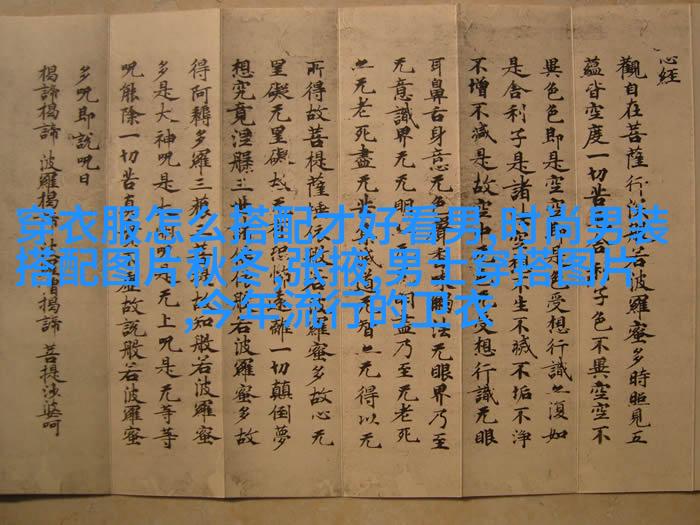 穿衣服怎么搭配才好看男,时尚男装
搭配图片秋冬,张掖,男士穿搭图片
,今年流行的卫衣
心经
觀自在菩薩行深般若波羅蜜多時照見五
蘊皆空度一切苦 舍利子色不異空空不
異色色即是空空即是色受想行識亦復如
是舍利子是諸 空相不生不滅不垢不淨
不增不減是故空中 受想行識无眼
耳鼻舌身意无色聲香味觸法无眼界乃至
无意識界无无明 明盡乃至无老死
亦无老死盡无苦集滅道无智亦无得以无
所得故菩提薩埵依般若波羅蜜多故心无
罣礙无罣礙故无 恐怖遠離一切顛倒夢
想究竟涅槃三世 依般若波羅蜜多故
得阿耨多羅三藐 菩提故知般若波羅蜜
多是大神咒是大 咒是无上咒是无等等
咒能除一切苦真 虛故說般若波羅蜜
多咒即說咒曰
揭諦揭諦 波羅揭 僧揭諦 菩提